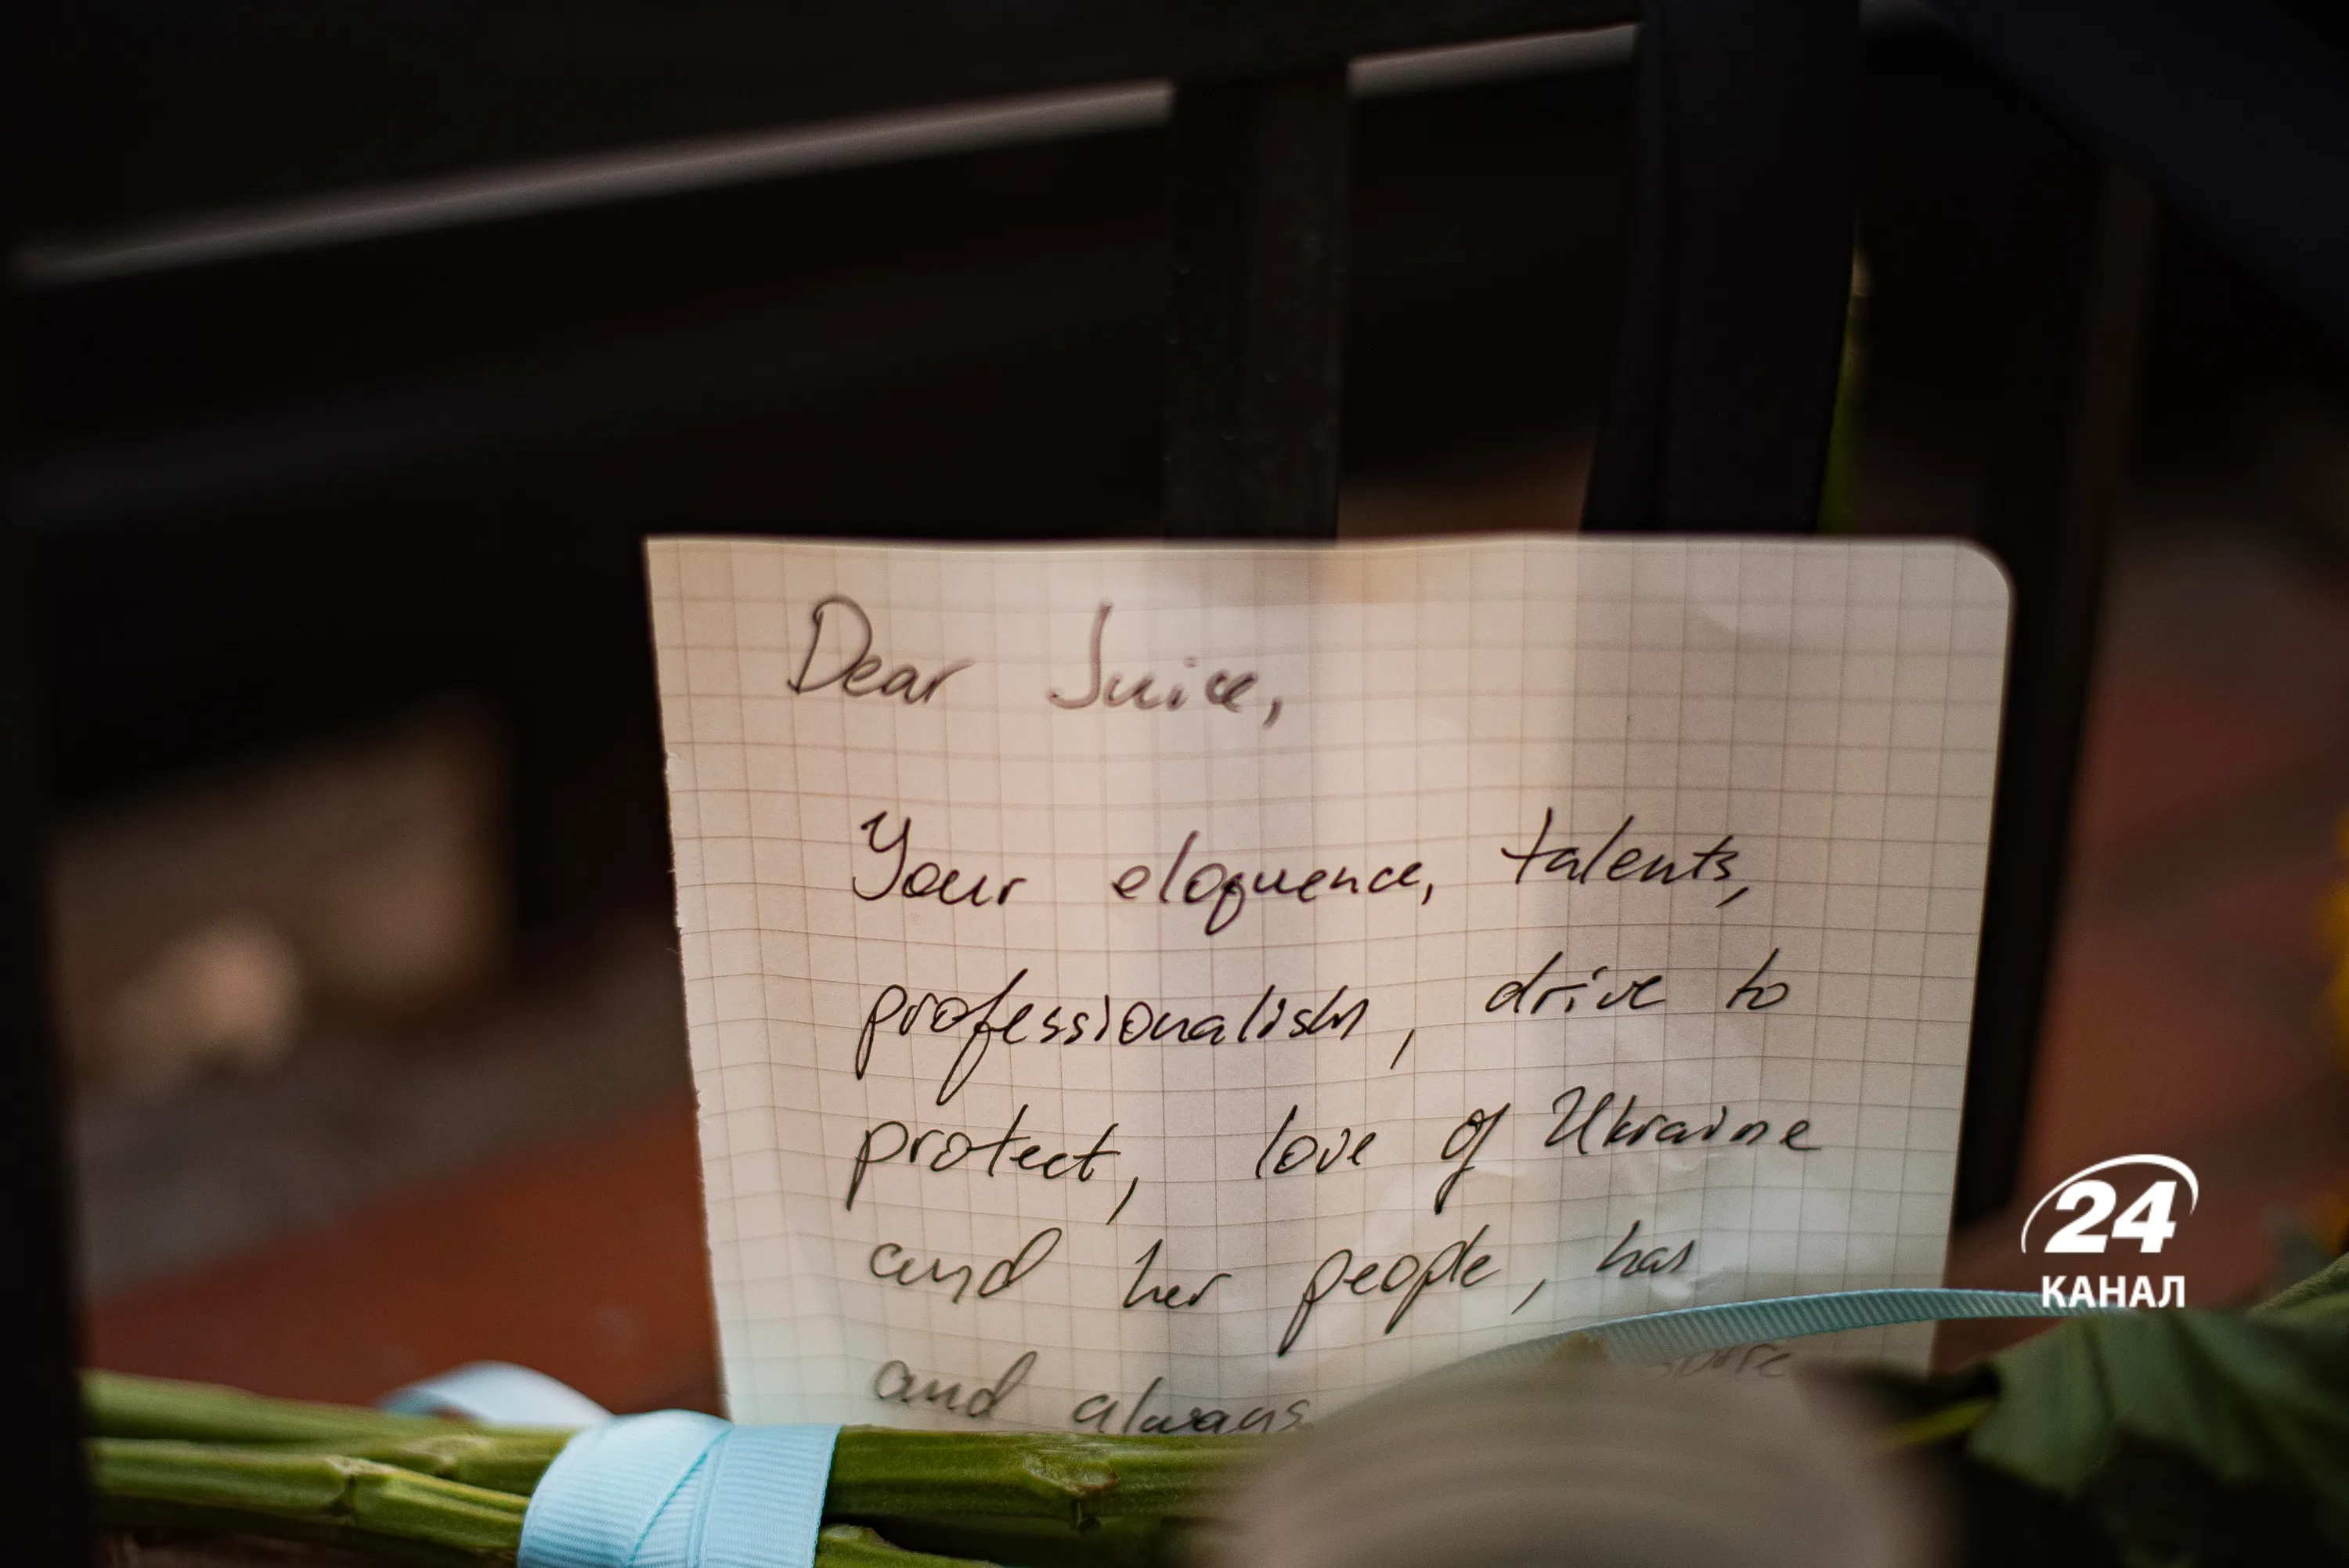 Dear Juice,
Your eloquence, talents,
professionalism, drive to
protect, love of Ukraine
and her people, has
and always
24
КАНАЛ